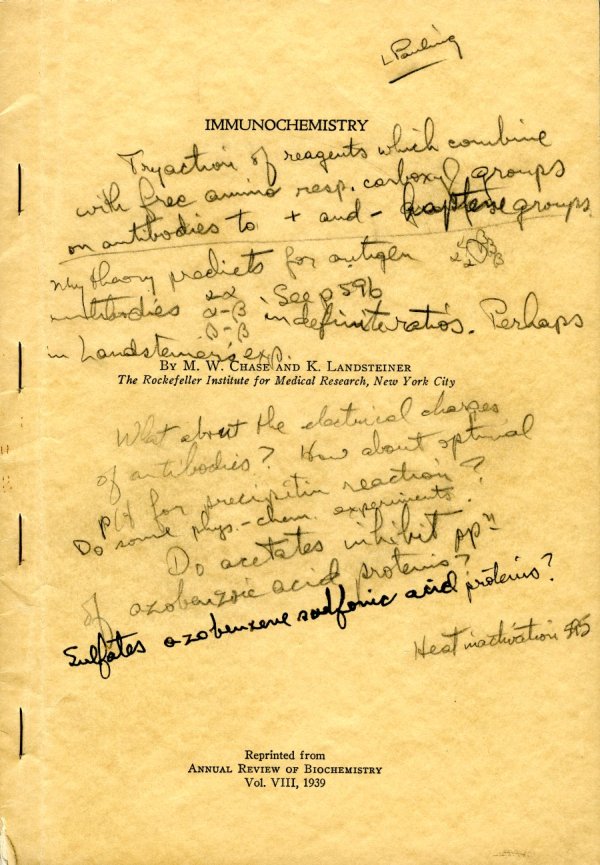 L Pauling
IMMUNOCHEMISTRY
Try action of reagents which combine
with free amino resp. carboxyl groups
on antibodies to + and - haptene groups
My theory predicts for antigen α α β β
antibodies α-α See p 596
α-β in definite ratios. Perhaps
β-β
in Landsteiner's exp.
BY M. W. CHASE AND K. LANDSTEINER
The Rockefeller Institute for Medical Research, New York City
What about the electrical charges
of antibodies? How about optimal
pH for precipitin reaction?
Do some phys.-chem. experiments.
Do acetates inhibit ppn
of azobenzoic acid proteins?
Sulfates azobenzene sulfonic acid proteins?
Heat inactivation 595
Reprinted from
ANNUAL REVIEW OF BIOCHEMISTRY
Vol. VIII, 1939